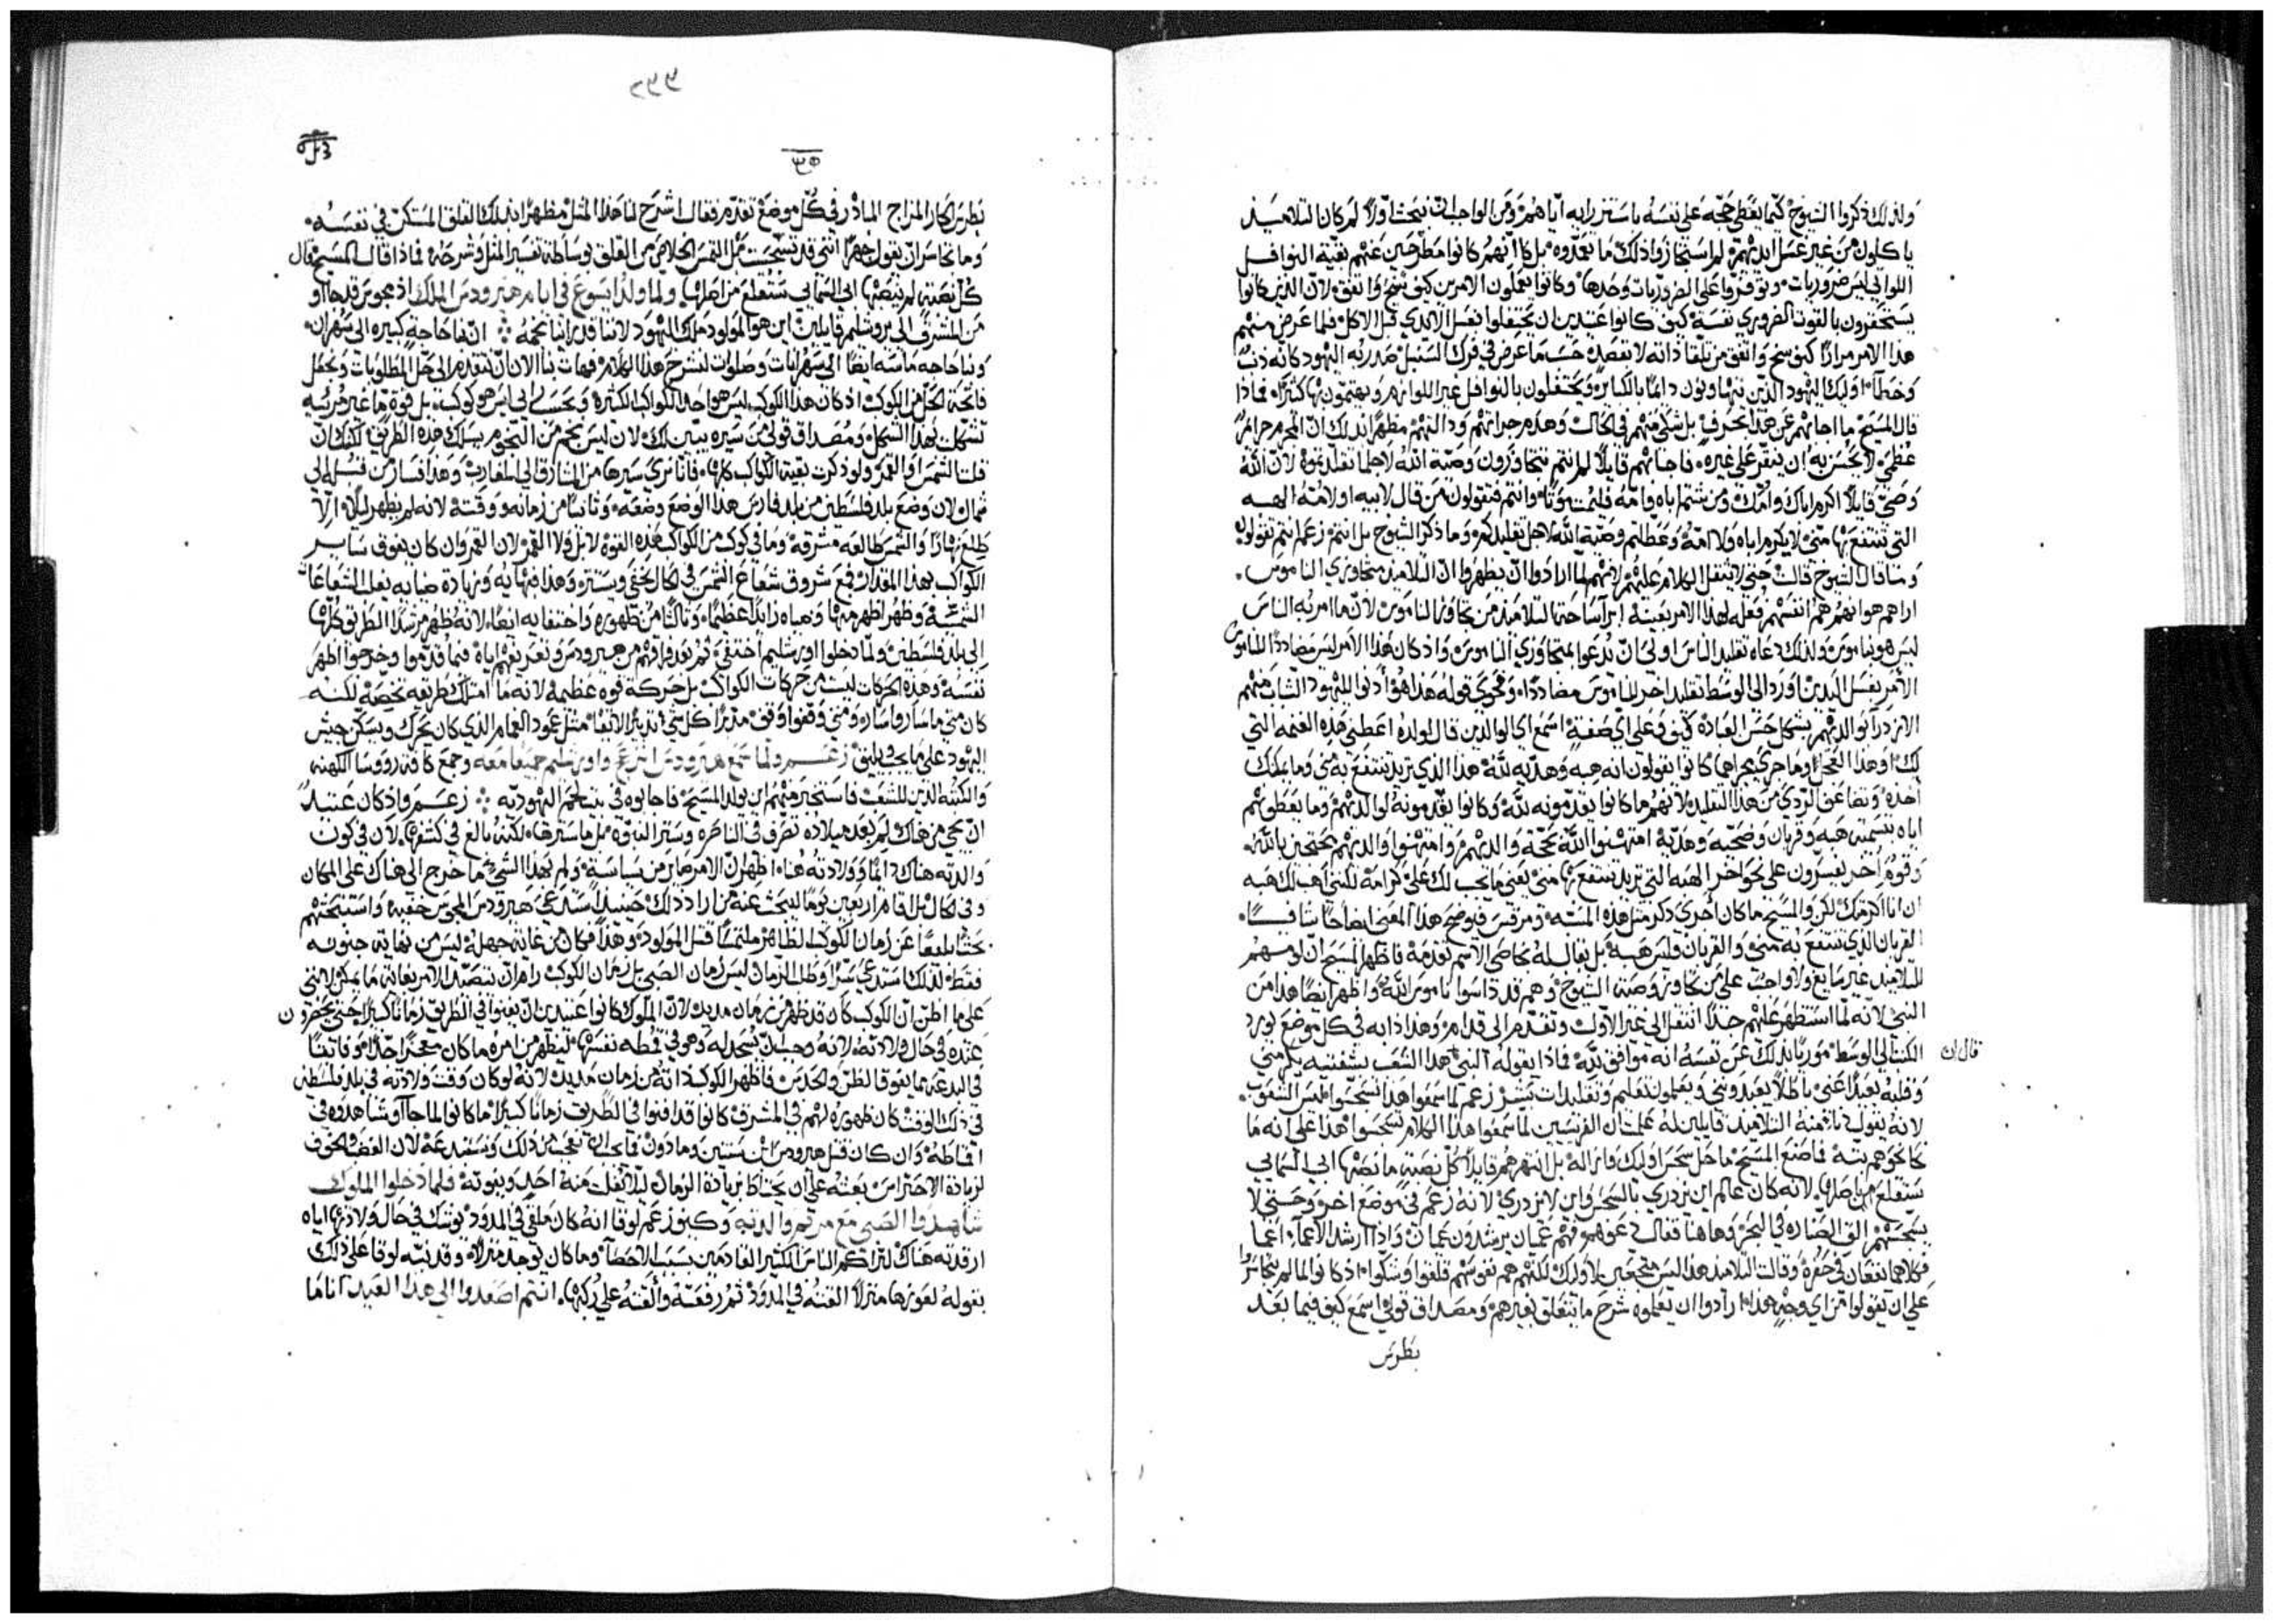 ولذلك ذكروا الشيوخ كيما يغطي حجه علي نفسه باستنرايه اياهم ومن الواجب ان نبحث اولاً لم كان التلاميذ
ياكلون من غير غسل ايديهم لم استجازوا ذلك ما تعمدوه بل كانهم كانوا مطرحين عنهم بقية النوافل
اللواتي ليس ضروريات وتوفروا علي الضروريات وحدها وكانوا يعملون الامرين كيف سنح واتفق لان الذين كانوا
يستحقرون بالقوت الضروري نفسه كيف كانوا عتيدين ان يحتفلوا بغسل الايدي قبل الاكل فلما عرض منهم
هذا الامر مراراً كيف سنح واتفق من تلقا ذاته لا بقصد حسب ما عرض في فرك السنبل صدر به اليهود كانه ذنب
وخطا اوليك اليهود الذين يتهاونون دايماً بالكباير ويحتفلون بالنوافل غير اللوازم ويهتمون بها كثيراً فماذا
قال المسيح ما اجابهم عن هذا الحرف بل شكي منهم في الحال وهدم جراتهم ودالتهم مظهراً بذلك ان المجرم جرايم
عظمي لا يحسن به ان ينقر علي غيره فاجابهم قايلاً لم انتم تتجاوزون وصية الله لاجل تقليدكم لان الله
وصي قايلاً اكرم اباك وامك ومن شتم اباه وامه فليمت موتاً وانتم فتقولون من قال لابيه او لامه الهبه
التي تنتفع بها مني لا يكرم اباه ولا امه وعطلتم وصية الله لاجل تقليدكم وما ذكر الشيوخ بل انتم زعم انتم تقولون
وما قال الشيوخ قالت حتي لا يثقل الكلام عليهم لانهم لما ارادوا ان يظهروا ان التلاميذ متجاوزي الناموس
اراهم هو انهم هم انفسهم فعله لهذا الامر بعينه ابرا ساحة التلاميذ من تجاوز الناموس لان ما امر به الناس
ليس هو ناموس ولذلك دعاه تقليد الناس اولي ان يدعوا متجاوزي الناموس واذ كان هذا الامر ليس مضادداً للناموس
الامر بغسل اليدين اورد الي الوسط تقليد اخر للناموس مضاددا وفحوي قوله هذا هو ادنوا لليهود الشباب منهم
الازدرا بوالديهم بشكل حسن العباده كيف وعلي اي صفة اسمع اي لو الذين قال لولده اعطني هذه الغنمه التي
لك او هذا العجل او ما جري مجراهما كانوا يقولون انه هبه وهديه لله هذا الذي تريد تنتفع به مني وما يمكنك
اخذه وتضاعف الردي من هذا التقليد لانهم ما كانوا يقدمونه لله وكانوا يقدمونه لوالديهم وما يعطونهم
اياه بتسميته هبه وقربان وضحيه وهديه
وقوم اخر يفسرون علي نحو اخر الهبه التي تريد تنتفع بها مني يعني ما يجب لك علي كرامة لكنني اهب لك هبه
ان انا اكرمتك لكن المسيح ما كان احري ذكر مثل هذه المسبه ومرقس فيوضح هذا المعني ايضاحاً شافياً
القربان الذي تنتفع به مني والقربان فليس هبه بل يقال له بخاصي الاسم تقدمة فاظهر المسيح ان لومهم
للتلاميذ غير سايغ ولا واجب علي من تجاوز وصية الشيوخ وهم قد داسوا ناموس الله واظهر ايضاً هذا من
النبي لانه لما استظهر عليهم جداً انتقل الي غير الاول وتقدم الي قدام وهذا دابه في كل موضع يورد
الكتب الي الوسط مورياً بذلك عن نفسه انه موافق لله فماذا يقوله النبي هذا الشعب بشفتيه يكرمني
قال ان
وقلبه بعيداً عني باطلاً يعبدونني ويعلمون تعليم وتقليدات بشر زعم لما سمعوا هذا تسجسوا ليس الشعوب
لانه يقول دنا منه التلاميذ قايلين له علمت ان الفريسيين لما سمعوا هذا الكلام تسجسوا هذا علي انه ما
كانحوهم بته فما صنع المسيح ما حل سجس اوليك وازاله بل انتهرهم قايلاً كل نصبة ما نصبها ابي السمايي
ستقلع من اصلها لانه كان عالم ان يزدري بالسجس وان لا يزدري لانه زعم في موضع اخر وحتي لا
نسجسهم الق الصناره في البحر وها هنا فقال دعوهم فهم عميان يرشدون عميان واذا ارشد الاعما اعما
فكلاهما يقعان في حفره وقالت التلاميذ هذا ليس متوجعين لاوليك لكنهم هم نفوسهم قلقوا وشكوا اذ كانوا لما لم يتجاسروا
علي ان يقولوا من اي وجه هذا ارادوا ان يعلموه شرح ما يتعلق بغيرهم ومصداق قولي اسمع كيف فيما بعد
بطرس
بطرس الحار المزاج المبادر في كل موضع تقدم فقال اشرح لنا هذا المثل مظهراً بذلك القلق المستكن في نفسه
وما تجاسر ان يقول جهراً انني قد تسجست بل التمس الخلاص من القلق بوساطة تفسير المثل وشرحه فماذا قال المسيح قال
كل نصبة لم ينصبها ابي السمايي ستقلع من اصلها ولما ولد ايسوع في ايام هيرودس الملك اذ مجوس قد جاوا
من المشرق الي يروشليم قايلين اين هو المولود ملك اليهود لاننا قد راينا نجمه اننا حاجة كبيره الي سهران
وبنا حاجه ماسه ايضاً الي سهرانات وصلوات لنشرح هذا الكلام فهات بنا الان ان نتقدم الي حل المطلوبات ونجعل
فاتحة الحل من الكوكب اذ كان هذا الكوكب ليس هو احد الكواكب الكثيره ويحسب لي ليس هو كوكب بل قوة ما غير مرئيه
تشكلت بهذا الشكل ومصداق قولي من سيره يتبين لك لان ليس نجم من النجوم يسلك هذه الطريق لكنك ان
قلت الشمس او القمر ولو ذكرت بقية الكواكب كلها فاننا نري سيرها من المشارق الي المغارب وهذا فسار من قبله الي
شمال لان وضع بلد فلسطين من بلد فارس هذا الوضع وضعه وثانياً من زمانه ووقته لانه لم يظهر ليلاً الا
طلع نهاراً والشمس طالعه مشرقه وما في كوكب من الكواكب هذه القوة لا بل ولا القمر لان القمر وان كان يفوق ساير
الكواكب بهذا المقدار فمع شروق شعاع الشمس في الحال يختفي ويستتر وهذا فبهايه وزيادة ضيايه يعلي الشعاعات
الشمسيه وظهر اظهر منها وضياه زايداً عظيماً وثالثاً من ظهوره واختفايه ايضاً لانه ظهر مرشداً الطريق كلها
الي بلد فلسطين ولما دخلوا اورشليم اختفي ثم بعد فراقهم من هيرودس وتعريفهم اياه فيما قدموا وخرجوا اظهر
نفسه وهذه الحركات ليست من حركات الكواكب بل حركة قوه عظيمه لانه ما امتلك طريقه تخصه لكنه
كان متي ما ساروا ساره ومتي وقفوا وقف مدبراً كل شي تدبيراً لايقاً مثل عمود الغمام الذي كان يحرك ويسكن جيش
اليهود علي ما يجب ويليق زعم ولما سمع هيرودس انزعج واورشليم جميعاً معه وجمع كافة رووسا الكهنه
والكتبه الذين للشعب فاستخبر منهم اين يولد المسيح فاجابوه في بيت لحم اليهوديه زعم واذ كان عتيداً
ان يجي من هناك لم بعد ميلاده تصرف في الناصره وستر النبوه بل ما سترها لكنه بالغ في كشفها لان في كون
والدته هناك دايماً وولادته هنا اظهر ان الامر صار من سياسة ولم بهذا السبب ما خرج الي هناك علي المكان
وفي الحال بل اقام اربعين يوماً ليبحث عنه من اراد ذلك حينيذ استدعي هيرودس المجوس خفيه واستبحثهم
بحثاً بليغاً عن زمان الكوكب الظاهر ملتمساً قتل المولود وهذا فكان من غاية جهله ليس من نهاية جنونه
فقط لذلك استدعي سراً وطلب الزمان ليس زمان الصبي بل زمان الكوكب رام ان يتصيد الامر بغاية ما يمكن لانني
علي ما اظن ان الكوكب كان قد ظهر من زمان مديد لان الملوك كانوا عتيدين ان يفنوا في الطريق زماناً كبيراً حتي يحضرون
عنده وفي حال ولادته لانه وجب ان يسجد له وهو في قمطه نفسها ليظهر من امره ما كان معجزاً جداً وفايقاً
في البدعه مما يفوق الظن والحدس فاظهر الكوكب ذاته من زمان مديد لانه لو كان وقت ولادته في بلد فلسطين
في ذلك الوقت كان ظهوره لهم في المشرق كانوا قد افنوا في الطريق زماناً كبيراً ما كانوا لما جاوا شاهدوه في
اقماطه وان كان قتل هيرودس ابن سنتين وما دون فما يجب ان نعجب من ذلك ونستبدعه لان الغضب والخوف
لزيادة الاحتراس بعثه علي ان يحتاط بزيادة الزمان ليلا يفلت منه احد ويفوته فلما دخلوا الملوك
شاهدوا الصبي مع مريم والدته وكيف زعم لوقا انه كان ملقي في المدود يوشك في حال ولادتها اياه
ارقدته هناك لتراكم الناس الكثير القادمين بسبب الاحصا وما كان يوجد منزلاً وقد نبه لوقا علي ذلك
بقوله لعوزها منزلاً القته في المدود ثم رفعته والقته علي ركبها انتم اصعدوا الي هذا العيد انا ما